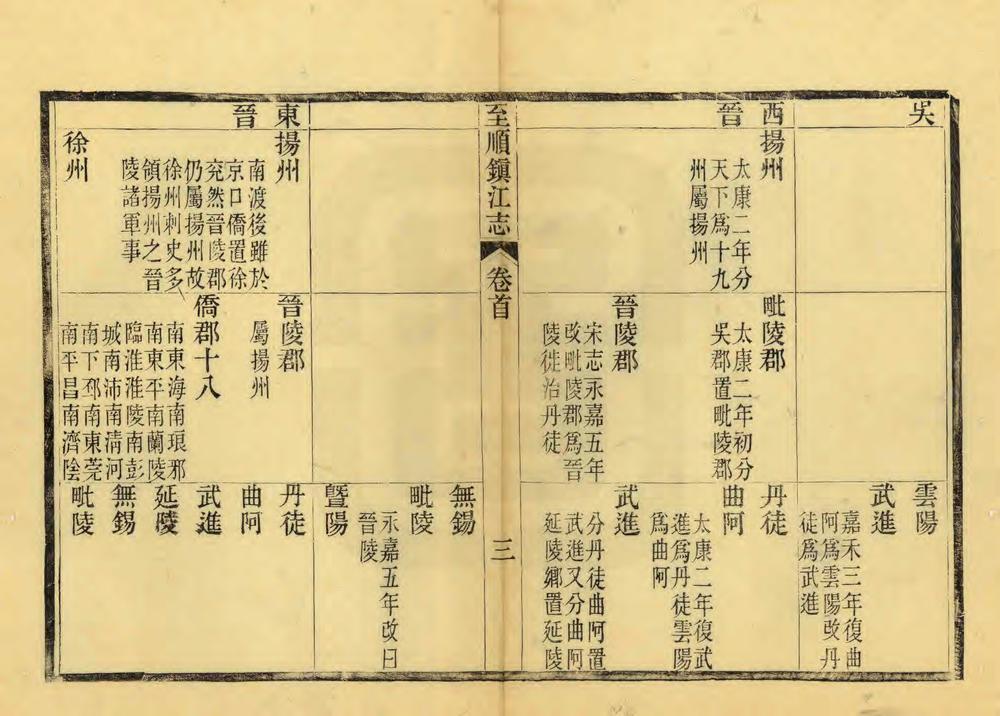 吳
雲陽
嘉禾三年復曲
阿爲雲陽改丹
徒爲武進
武進
西晉
揚州
太康二年分
天下爲十九
州屬揚州
毗陵郡
太康二年初分
吳郡置毗陵郡
晉陵郡
宋志永嘉五年
改毗陵郡爲晉
陵徙治丹徒
丹徒
曲阿
太康二年復武
進爲丹徒雲陽
爲曲阿
武進
分丹徒曲阿置
武進又分曲阿
延陵鄉置延陵
至順鎮江志
卷首
三
無錫
毗陵
暨陽
永嘉五年改曰
晉陵
東晉
揚州
南渡後雖於
京口僑置徐
兖然晉陵郡
仍屬揚州故
徐州刺史多
領揚州之晉
陵諸軍事
徐州
晉陵郡
屬揚州
僑郡十八
南東海南琅邪
南東平南蘭陵
臨淮淮陵南彭
城南沛南清河
南下邳南東莞
南平昌南濟陰
丹徒
曲阿
武進
延陵
無錫
毗陵